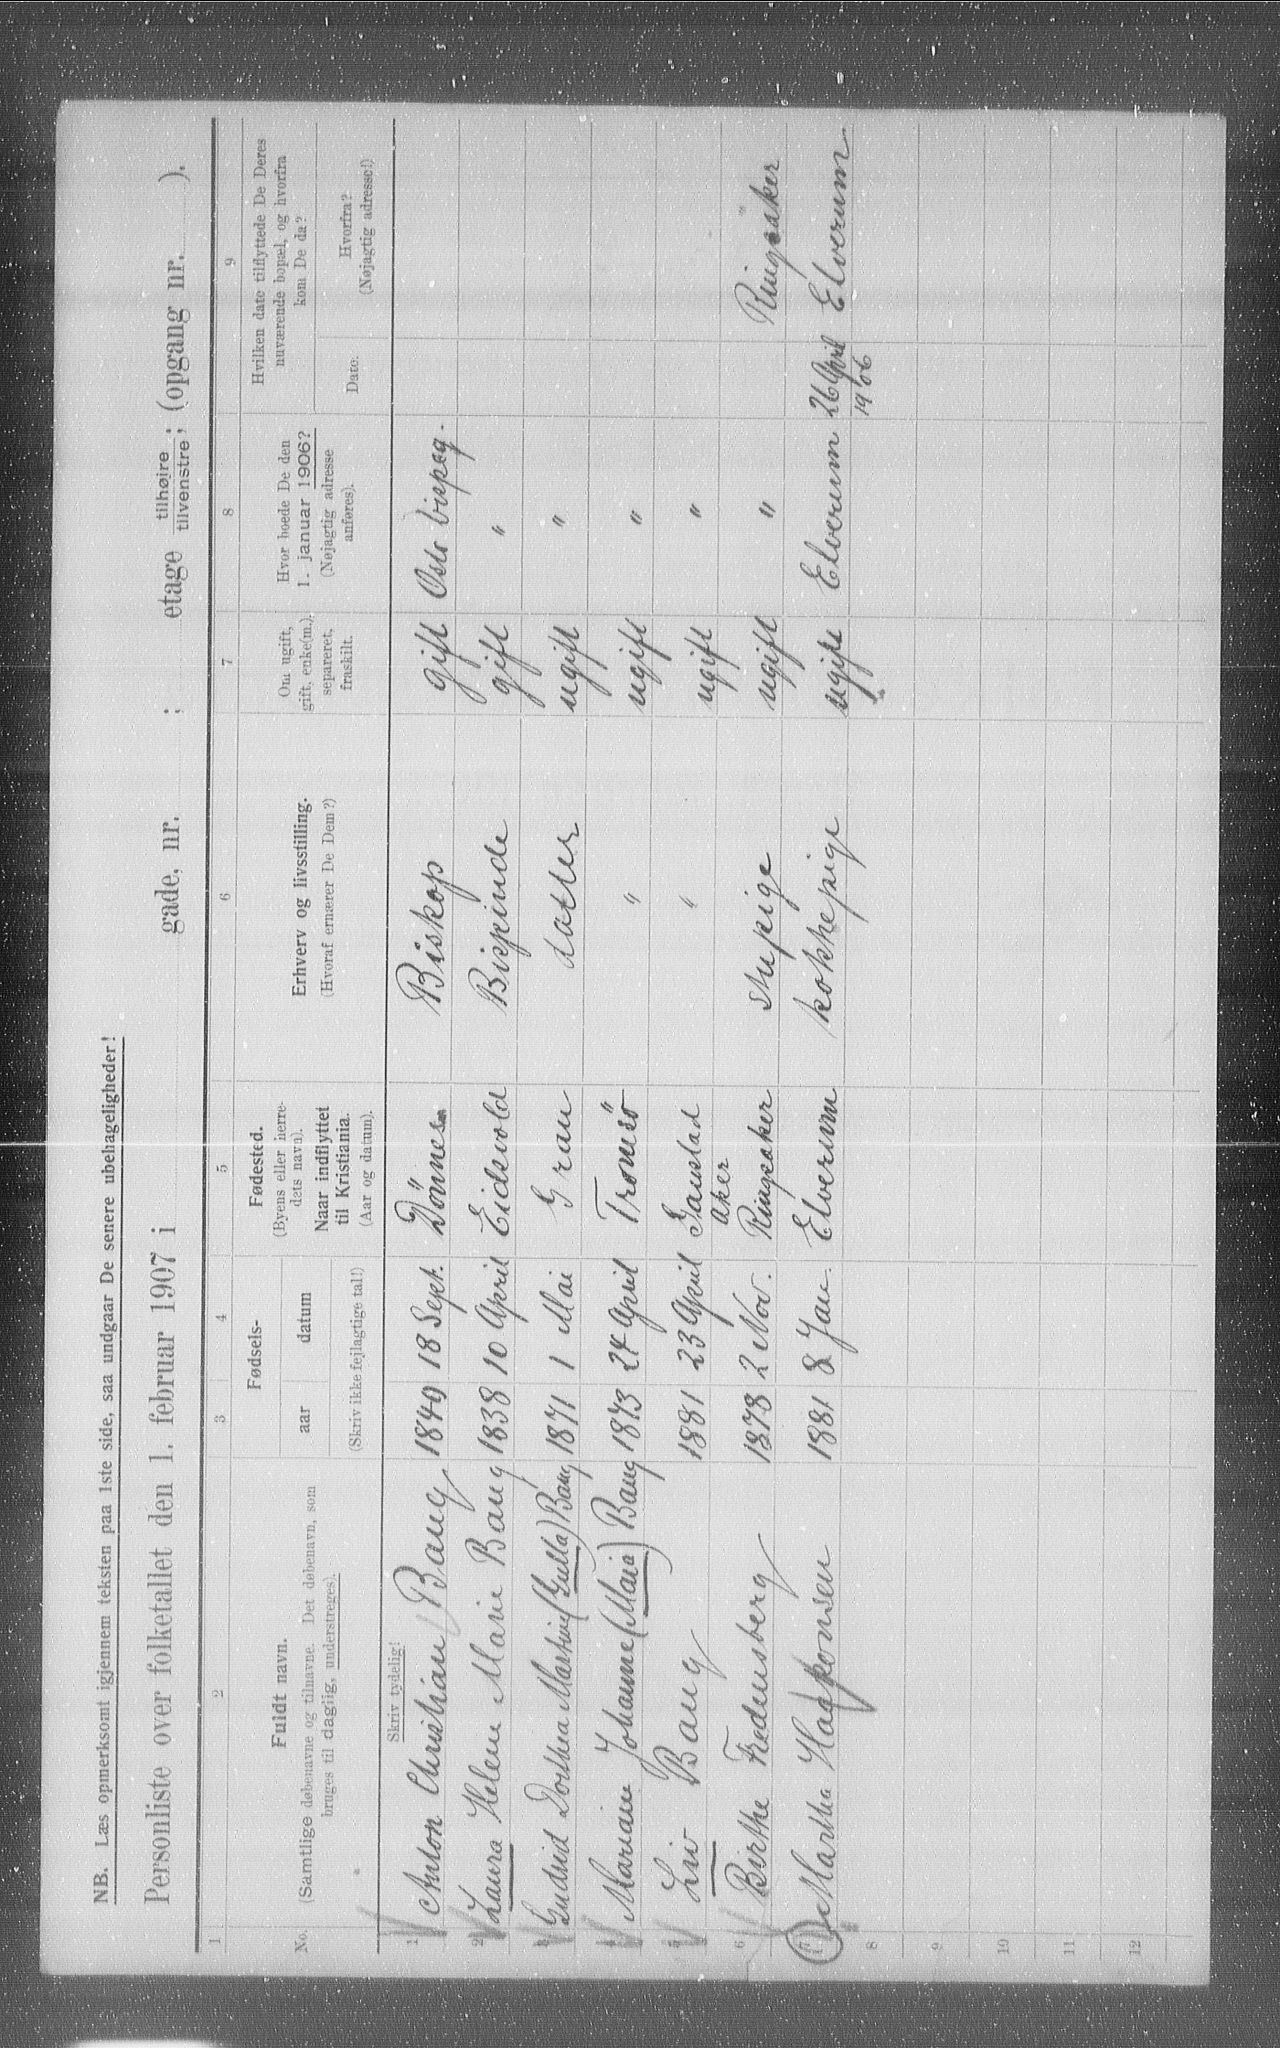 NB. Læs opmerksomt igjennem teksten paa 1ste side, saa undgaar De senere ubehageligheder!
Personliste over folketallet den 1. februar 1907 i gade, nr. ; etage tilhøire tilvenstre ; (opgang nr. ).
1 2 3 4 5 6 7 8 9
No.
Fuldt navn.
(Samtlige døbenavne og tilnavne. Det døbenavn, som
bruges til daglig, understreges).
Fødsels-
aar datum
(Skriv ikke fejlagtige tal!)
Fødested.
(Byens eller herre-
dets navn).
Naar indflyttet
til Kristiania.
(Aar og datum).
Erhverv og livsstilling.
(Hvoraf ernærer De Dem?)
Om ugift,
gift, enke(m.),
separeret,
fraskilt.
Hvor boede De den
1. januar 1906?
(Nøjagtig adresse
anføres).
Hvilken dato tilflyttede De Deres
nuværende bopæl, og hvorfra
kom De da?
Dato. Hvorfra?
(Nøjagtig adresse!)
Skriv tydelig!
1 Anton Christian Bang 1840 18 Sept. Dönnes Biskop gift Oslo bispeg.
2 Laura Helene Marie Bang 1838 10 April Eidsvold Bispinde gift "
3 Gudrid Dorthea Martine (Gulla) Bang 1871 1 Mai Gran datter ugift "
4 Mariane Johanne (Maia) Bang 1873 24 April Tromsö " ugift "
5 Liv Bang 1881 23 April Gaustad " ugift "
Aker
6 Birthe Fredensberg 1878 2 Nov. Ringsaker stupige ugift " Ringsaker
7 Martha Haakonsen 1881 8 Jan. Elverum kokkepige ugift Elverum 26 April Elverum
1906
8
9
10
11
12